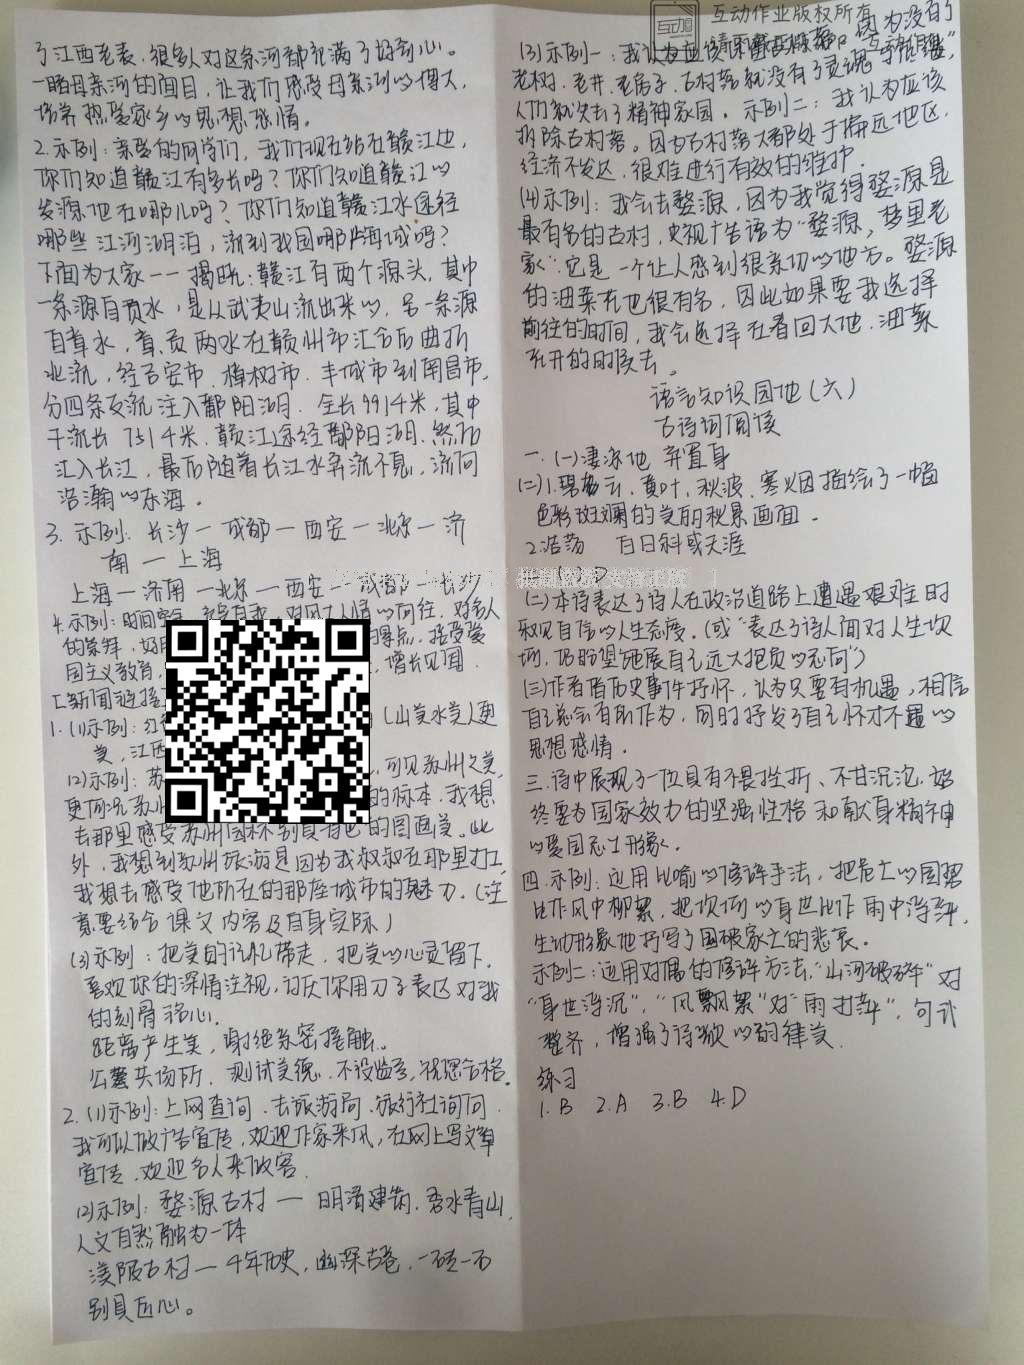 了江西老表,很多人对这条河都充满了好奇心。
一睹母亲河的面目,让我们感受母亲河的博大,
培养热爱家乡的思想感情。
2.示例:亲爱的同学们,我们现在站在赣江边,
你们知道赣江有多长吗?你们知道赣江的
发源地在哪儿吗?你们知道赣江水途径
哪些江河湖泊,流到我国哪片海域吗?
下面为大家一一揭晓:赣江有两个源头,其中
一条源自贡水,是从武夷山流出来的,另一条源
自章水,章、贡两水在赣州市汇合后曲折
北流,经吉安市、樟树市、丰城市到南昌市,
分四条支流注入鄱阳湖.全长991千米,其中
干流长751千米.赣江途经鄱阳湖,然后
汇入长江,最后随着长江水奔流不息,流向
浩瀚的东海。
3.示例:长沙—成都—西安—北京—济
南—上海
上海—济南—北京—西安—成都—长沙
4.示例:时间 对 人情的向往,对名人
的崇拜,好 景点,接受爱
国主义教育, 增长见闻.
[新闻链接
1.(1)示例:江 (山美水美人更
美,江西
(2)示例:苏 ,可见苏州之美,
更何况苏州 的标本,我想
去那里感受苏州园林别具特色的图画美。此
外,我想到苏州旅游是因为我叔叔在那里打工,
我想去感受他所在的那座城市的魅力.(注
意要结合课文内容及自身实际)
(3)示例:把美的记忆带走,把美的心灵留下.
喜欢你的深情注视,讨厌你用刀子表达对我
的刻骨铭心.
距离产生美,谢绝亲密接触.
公共场所,测试美德,不设监考,祝您合格.
2.(1)示例:上网查询、去旅游局、旅行社询问.
我可以做广告宣传,欢迎作家采风,在网上写文章
宣传,欢迎名人来做客.
(2)示例:婺源古村—明清建筑,秀水青山,
人文自然融为一体
渼陂古村—千年历史,幽深古巷,一砖一石
别具匠心。
互动作业版权所有
互动
(3)示例一:我认为应该 因为没有了
老树、老井、老房子,古村落就没有了灵魂,
人们就失去了精神家园.示例二:我认为应该
拆除古村落。因为古村落大都处于偏远地区,
经济不发达,很难进行有效的维护.
(4)示例:我会去婺源,因为我觉得婺源是
最有名的古村,央视广告语为“婺源,梦里老
家”.它是一个让人感到很亲切的地方。婺源
的油菜花也很有名,因此如果要我选择
前往的时间,我会选择在春回大地、油菜
花开的时候去。
语言知识园地(六)
古诗词阅读
一.(一)凄凉地 弃置身
(二)1.碧云,黄叶,秋波,寒烟描绘了一幅
色彩斑斓的美丽秋景画面.
2.浩荡 白日斜或天涯
D
(二)本诗表达了诗人在政治道路上遭遇艰难时
乐观自信的人生态度.(或“表达了诗人面对人生坎
坷,仍盼望施展自己远大抱负的志向”)
(三)作者借历史事件抒怀,认为只要有机遇,相信
自己总会有所作为,同时抒发了自己怀才不遇的
思想感情.
三.诗中展现了一位具有不畏挫折、不甘沉沦、始
终要为国家效力的坚强性格和献身精神
的爱国志士形象.
四.示例:运用比喻的修辞手法,把危亡的国势
比作风中柳絮,把坎坷的身世比作雨中浮萍,
生动形象地抒写了国破家亡的悲哀。
示例二:运用对偶的修辞方法,“山河破碎”对
“身世浮沉”,“风飘絮”对“雨打萍”,句式
整齐,增强了诗歌的韵律美.
练习
1.B 2.A 3.B 4.D